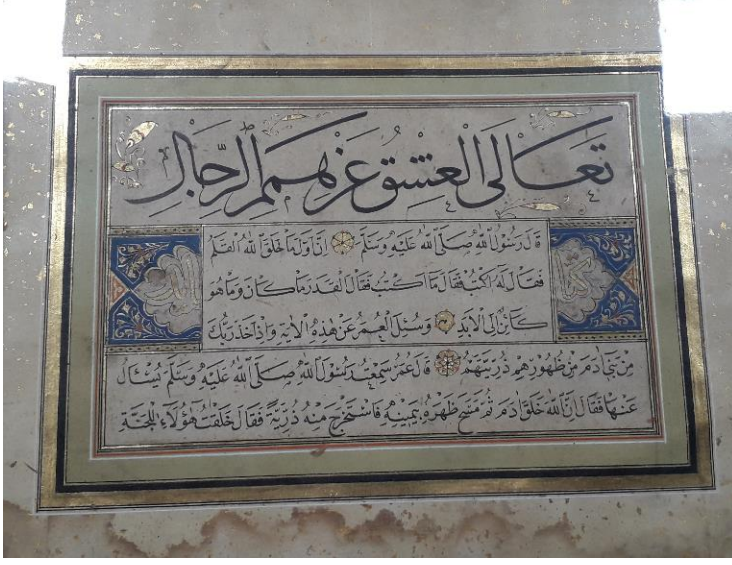 تَعَالَى الْعِشْقُ عَنْ هِمَمِ الرِّجَالِ
قَالَ رَسُوْلُ اللهِ صَلَّى اللهُ عَلَيْهِ وَسَلَّمَ اِنَّ اَوَّلَ مَا خَلَقَ اللهُ الْقَلَمُ
فَقَالَ لَهُ اكْتُبْ فَقَالَ مَا اَكْتُبُ فَقَالَ الْقَدَرَ مَا كَانَ وَمَا هُوَ
كَائِنٌ اِلَى الْاَبَدِ وَسُئِلَ الْعُمَرُ عَنْ هٰذِهِ الْاٰيَةِ وَاِذْ اَخَذَ رَبُّكَ
مِنْ بَنِى اٰدَمَ مِنْ ظُهُوْرِهِمْ ذُرِّيَّتَهُمْ قَالَ عُمَرُ سَمِعْتُ رَسُوْلَ اللهِ صَلَّى اللهُ عَلَيْهِ وَسَلَّمَ يُسْئَالُ
عَنْهَا فَقَالَ اِنَّ اللهَ خَلَقَ اٰدَمَ ثُمَّ مَسَحَ ظَهْرَهُ بِيَمِيْنِهِ فَاسْتَخْرَجَ مِنْهُ ذُرِّيَّةً فَقَالَ خَلَقْتُ هٰؤُلَاءِ لِلْجَنَّةِ